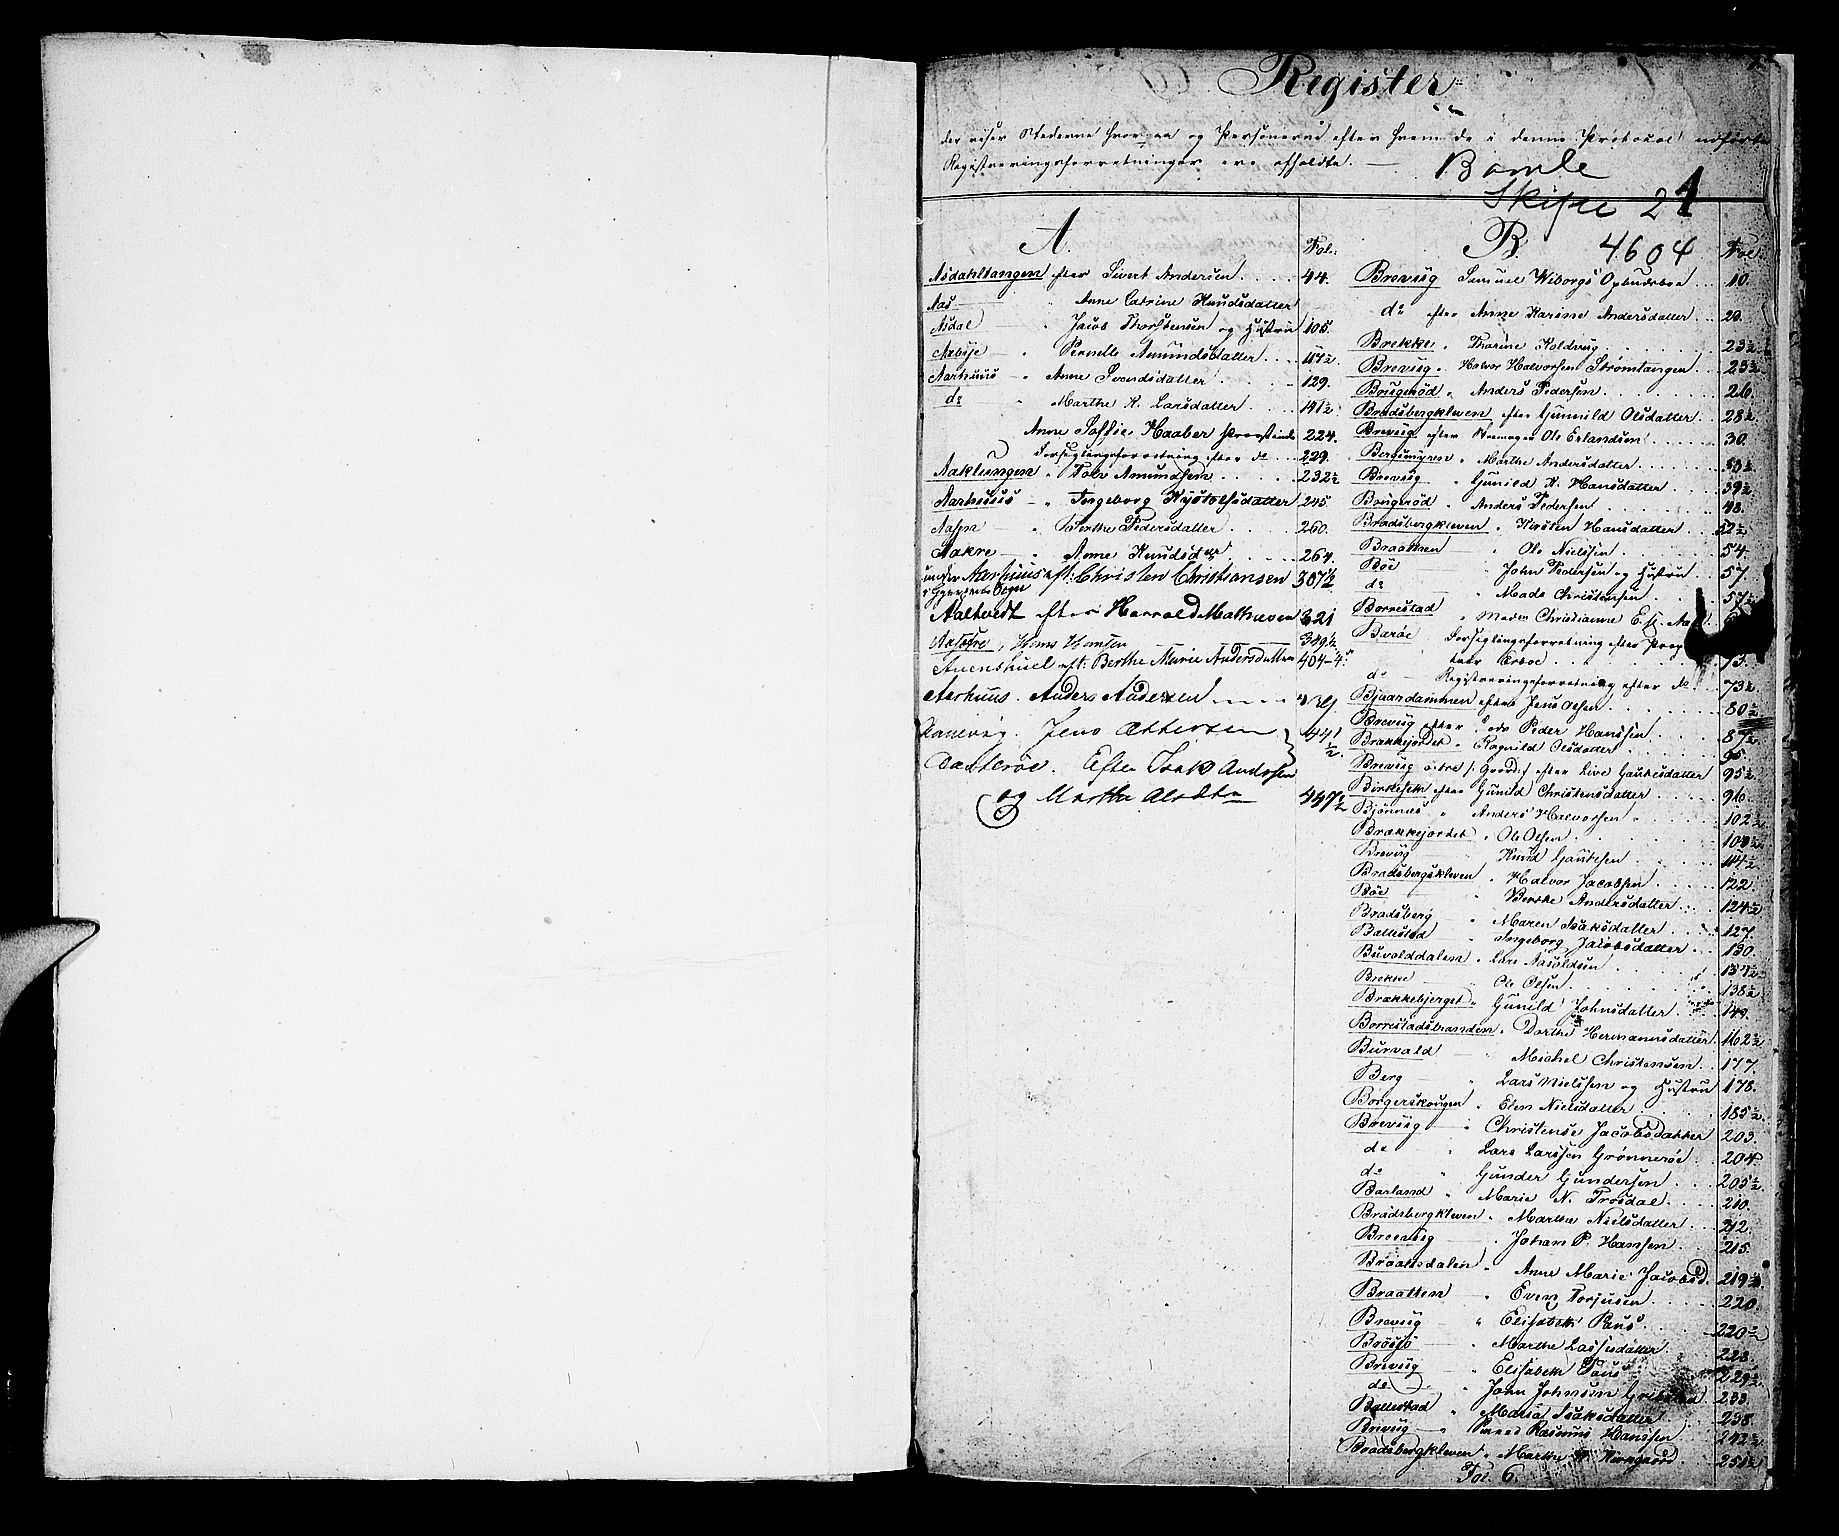 Register
der viser Stederne hvorpaa og Personerne efter hvem de i denne Protokol udførte
Registreringsforretninger ere afholdte.
Bamle
Skifte 21
4604
A. Fol:
Asdahltangen efter Sivert Andersen 44.
Aas " Anne Catrine Knudsdatter
Asdal " Jacob Thorstensen og Hustru 105.
Aaböje " Pernelle Amundsdatter 117½
Aarhuus " Anne Svendsdatter 129.
do Marthe K. Larsdatter 141½
Anne Soffie Haaber Provstinde 224.
Forseglingsforretning efter do 229.
Aaklungen " Tolv Amundsen 232½
Aarhuus " Ingeborg Kystolsdatter 245.
Aaspn " Berthe Pedersdatter 260.
Aakre " Anne Knudsdtr 264.
under Aarhuus eft: Christen Christiansen 307½
Aaltvedt efter Harrald Mathiesen 321
Hans Hansen 349½
eft. Berthe Marie Andersdatter 404-4
Aarhuus. Anders Andersen 439
Jens Attersen 441½
Efter Isak Andssen
og Marthe Olsdtr 447½
B. Fol:
Brevig Samuel Wiborgs Opbudsboe 10.
do efter Anne Karine Andersdatter 20.
Brekke " Thorine Koldevig 23½
Brevig " Halvor Halvorsen Strømtangen 25½
Bougeröd " Anders Pedersen 26.
Bradsbergkleven efter Gunnild Olsdatter 28½
Brevig efter Skomager Ole Erlandsen 30.
Bergsmyren " Marthe Andersdatter 33½
Brevig " Gunild K. Hansdatter 39½
Bougeröd " Anders Pedersen 48.
Bradsbergkleven " Kirsten Hansdatter 52½
Braatten " Ole Nielssen 54.
Böe " John Pedersen og Hustru 57.
do " Mads Christensen 57½
Borrestad " Maden Christianne E. sl.
Baröe Forseglingsforretning efter
73.
do Registreringsforretning efter do 73½
Bjaardammen efter Jens Olsen 80½
Brevig efter Peder Hanssen 87½
Brækkejordet " Ragnild Olsdatter 95.
Brevig efter Live Gautesdatter 95½
Birkesek efter Gunild Christensdatter 96.
Bjönnæs " Anders Halvorsen 102½
Brækkejordet " Ole Olsen 104½
Brevig " Knud Gautesen 114½
Bradsbergskleven " Halvor Jacobsen 122
Böe " Berthe Andersdatter 124½
Bradsberg " Maren Isaksdatter 127.
Ballestad " Ingeborg Jacobsdatter 130.
Buvolddalen " Lars Aasoldsen 137½
Brekke " Ole Olsen 138½
Brækkebjerget " Gunild Johnsdatter 149.
Borrestadstranden " Dorthe Hermannsdatter 162½
Burvald " Michel Christensen 177.
Berg " Lars Nielssen og Hustru 178.
Borgerskougen " Elen Nielsdatter 185½
Brevig " Christense Jacobsdatter 203.
do " Lars Larssen Grønneröe 204.
do " Gunder Gundersen 205½
Barland " Marie N. Trosdal 210.
Bradsbergkleven " Marthe Nielsdatter 212.
Brevig " Johan P. Hansen 215.
Braatesdalen " Anne Marie Jacobsd. 219½
Braatten " Even Torjusen 220.
Brevig " Elisabeth Paus 220½
Bröesjö " Marthe Lassesdatter 228.
Brevig " Elisabeth Paus 229½
do " John Johnsen 233.
Ballestad " Maria Isaksdatter 238.
Brevig " Rasmus Hanssen 242½
Bradsbergkleven " Marthe M. Kirkgaard 251½
Fol 6.